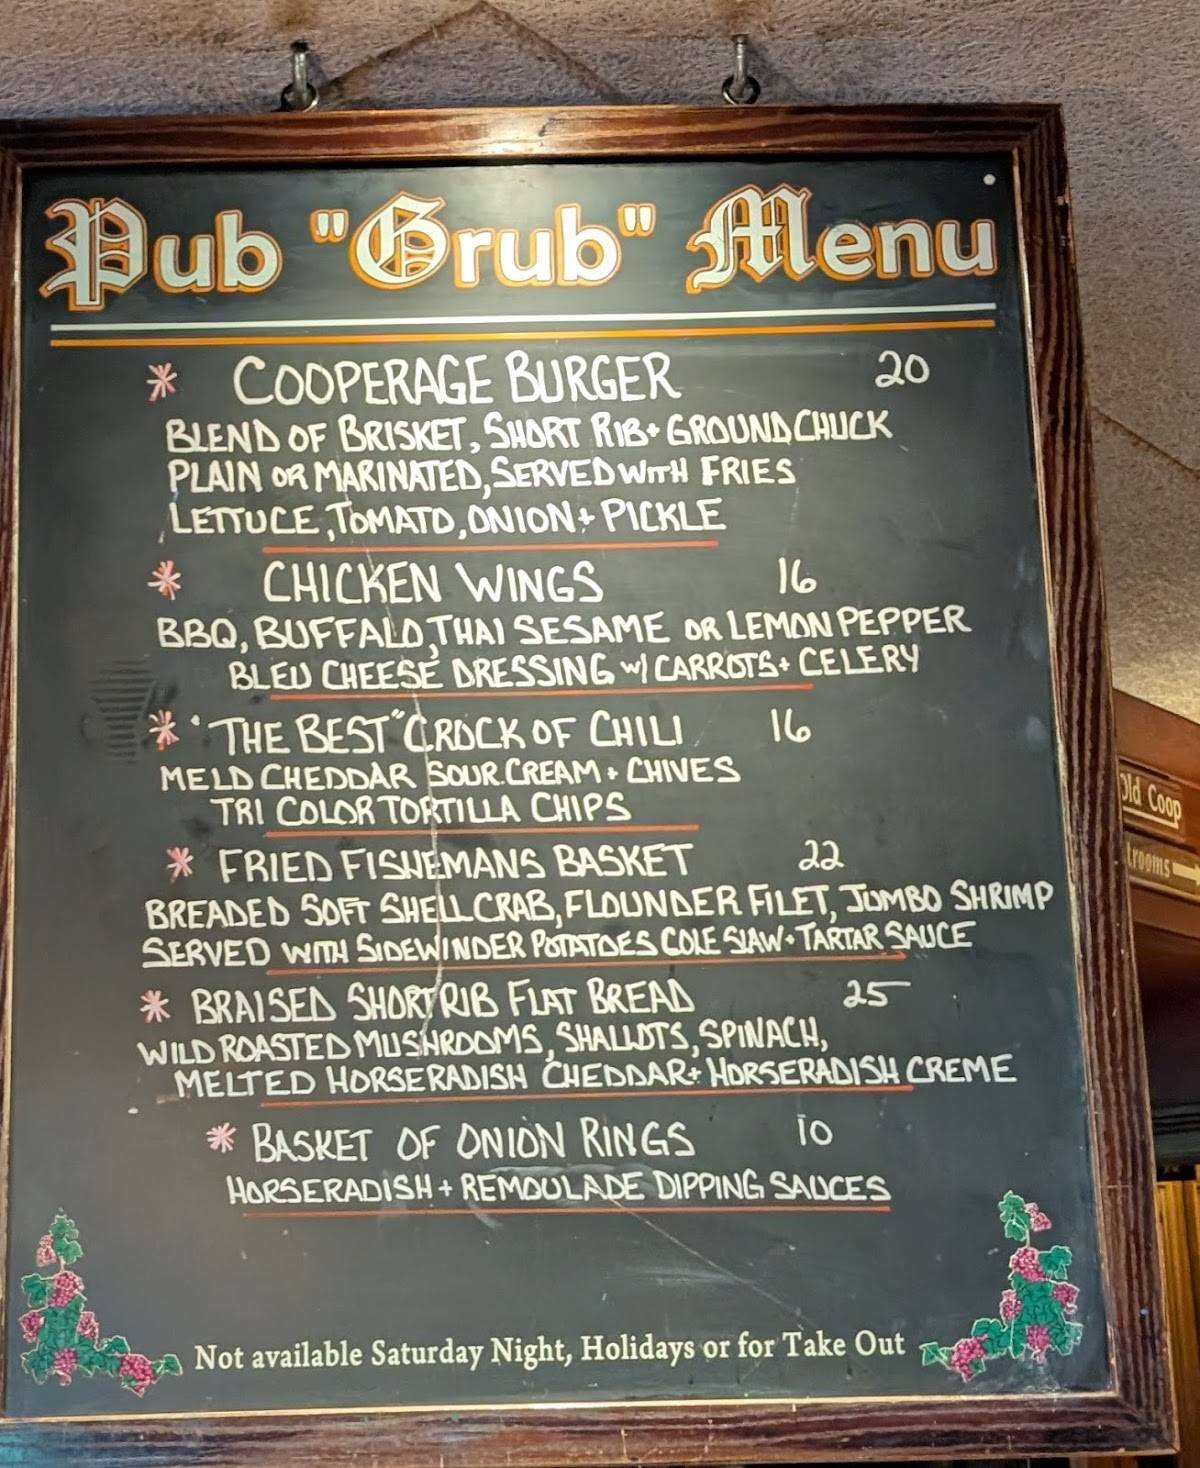 Pub "Grub" Menu
* COOPERAGE BURGER 20
BLEND OF BRISKET, SHORT RIB + GROUND CHUCK
PLAIN OR MARINATED, SERVED WITH FRIES
LETTUCE, TOMATO, ONION + PICKLE
* CHICKEN WINGS 16
BBQ, BUFFALO, THAI SESAME OR LEMON PEPPER
BLEU CHEESE DRESSING W/ CARROTS + CELERY
* "THE BEST" CROCK OF CHILI 16
MELD CHEDDAR SOUR CREAM + CHIVES
TRI COLOR TORTILLA CHIPS
* FRIED FISHEMANS BASKET 22
BREADED SOFT SHELL CRAB, FLOUNDER FILET, JUMBO SHRIMP
SERVED WITH SIDEWINDER POTATOES COLE SLAW + TARTAR SAUCE
* BRAISED SHORT RIB FLAT BREAD 25
WILD ROASTED MUSHROOMS, SHALLOTS, SPINACH,
MELTED HORSERADISH CHEDDAR + HORSERADISH CREME
* BASKET OF ONION RINGS 10
HORSERADISH + REMOULADE DIPPING SAUCES
Not available Saturday Night, Holidays or for Take Out
Old Coop
trooms